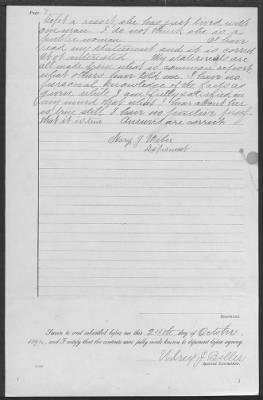 Page 7
kept a resort, she has just lived with
one man. I do not think she is a
public woman. I have
read my statement and it is correct
Not interested. My statements are
all made from what is common report,
what others have told me. I have no
personal knowledge of the facts as
while I am fully satisfied in
my mind that what I hear about her
is true still I have no positive proof
that it is true. Answers are correct
Deponent
Deponent.
Sworn to and subscribed before me this 24th day of October
189, and I certify that the contents were fully made known to deponent before signing.
Special Examiner.